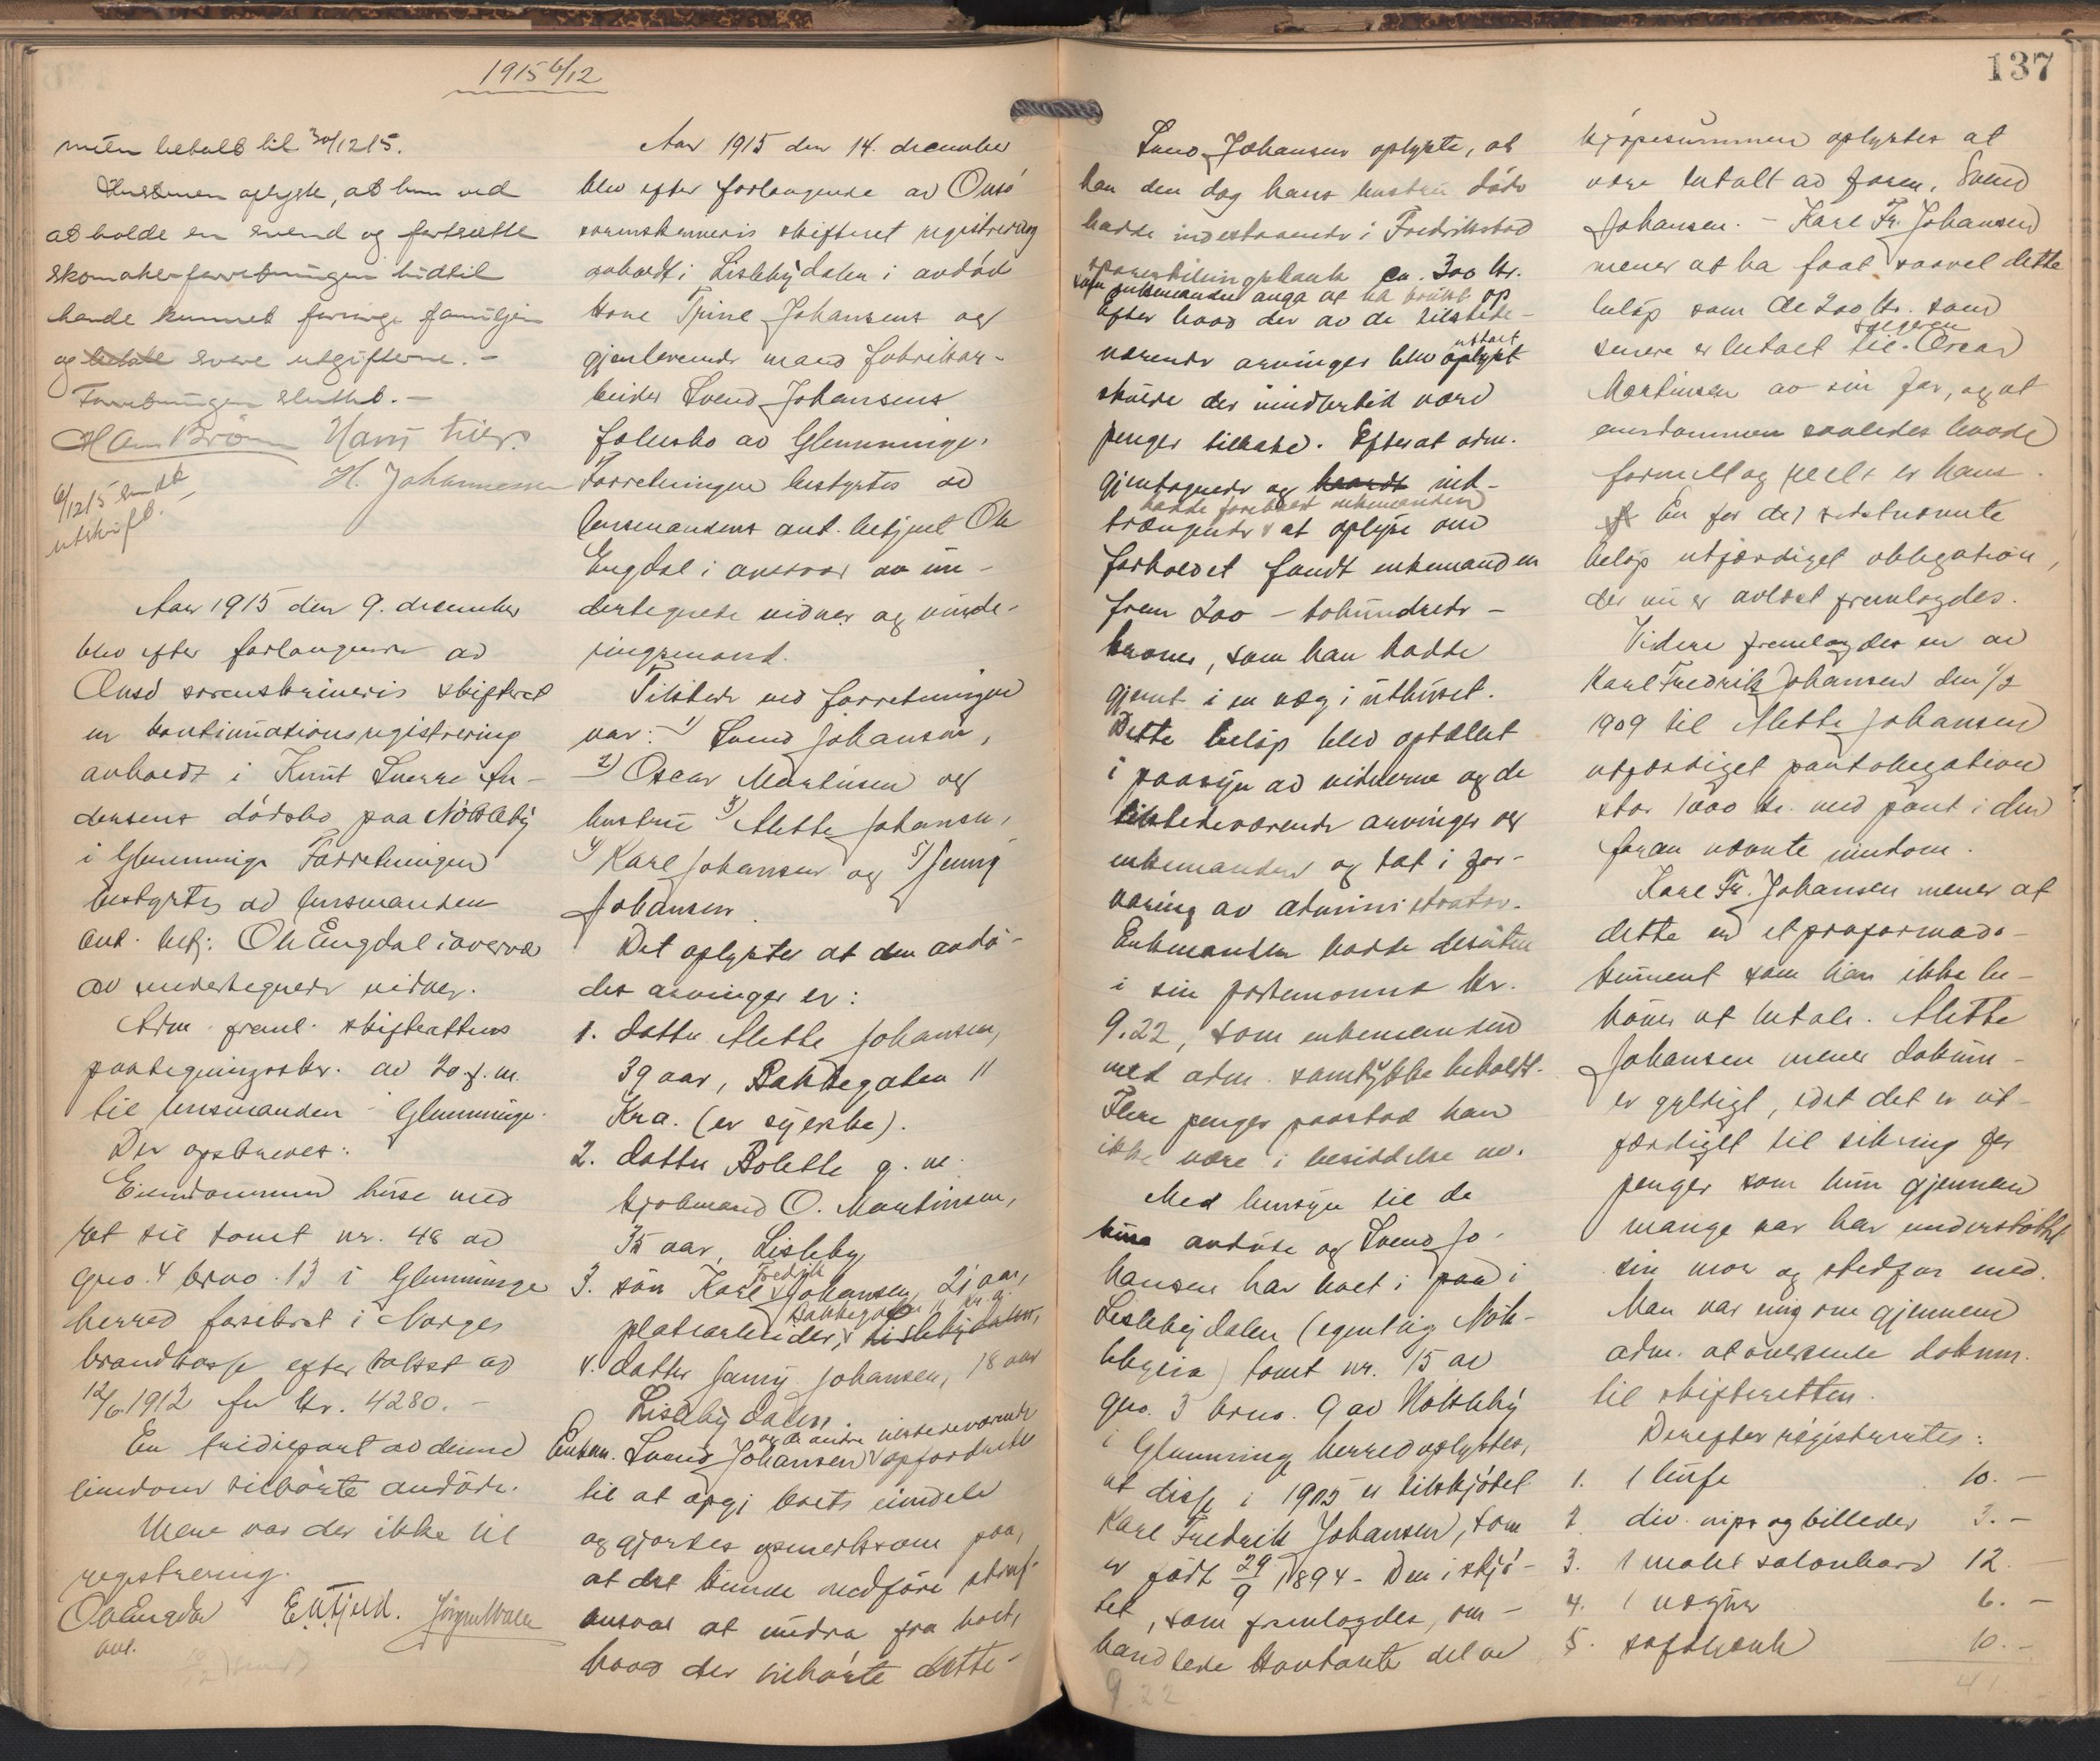 1915 6/12
137
betalt til 30/12 15.
Hustruen oplyste, at hun ved
at holde en svend og fortsætte
skomakerforretningen hidtil
hadde kunnet familjen
og betale svare utgifterne. -
Forretningen sluttet. -
H. Johannessen
6/12 15 sendt
utskrift.
Aar 1915 den 9. december
blev efter forlangende av
Onsø sorenskriveris skifteret
en kontinuationsregistrering
avholdt i Knut Sverre An-
dersens dødsbo paa Nøkleby
i Glemminge. Forretningen
bestyrtes av lensmanden
aut. betj. Ole Engdal i overvær
av undertegnede vidner.
Adm. freml. skifterettens
paategningsskr. av 20. f. m.
til lensmanden i Glemminge.
Der opskreves:
Eiendommen huse med
ret til tomt nr. 48 av
gno. 4 brno. 13 i Glemminge
herred forsikret i Norges
brandkasse efter takst av
12/6 1912 for kr. 4280. -
En tridiepart av denne
eiendom tilhørte avdøde.
Mere var der ikke til
registrering.
Ole Engdal
aut.
Aar 1915 den 14. december
blev efter forlangende av Onsø
sorenskriveris skifteret registrering
avholdt i Lislebydalen i avdøde
kone Trine Johansens og
gjenlevende mand fabrikar-
beider Svend Johansens
fælesbo av Glemminge.
Forretningen bestyrtes av
lensmandens aut. betjent Ole
Engdal i overvær av un-
dertegnede vidner og vurde-
ringsmænd.
Tilstede ved forretningen
var: 1) Svend Johansen,
2) Oscar Martinsen og
hustru 3) Mette Johansen,
4) Karl Johansen og 5) Jenny
Johansen.
Det oplystes at den avdø-
des arvinger er:
1. datter Mette Johansen,
39 aar, Bakkegaten 11
Kra. (er syerske).
2. datter Bolette g. m.
kjøbmand O. Martinsen,
35 aar, Lisleby
3. søn Karl Fredrik Johansen, 21 aar,
platearbeider, Bakkegaten 11 Kr.a. Lislebydalen,
4. datter Jenny Johansen, 18 aar
Lislebydalen.
Enkem. Svend Johansen og de andre tilstedeværende opfordredes
til at opgi boets eiendele
og gjordes opmerksom paa,
at det kunde medføre straf-
ansvar at undra fra boet,
hvad der tilhørte dette. -
Svend Johansen oplyste, at
han den dag hans hustru døde
hadde indestaaende i Fredrikstad
ca. 300 kr.
som enkemanden anga at ha brukt op
Efter hvad der av de tilstede-
værende arvinger blev oplyst uttalt
skulde der imidlertid være
penger tilbake. Efterat adm.
gjentagende og haardt ind-
trængende hadde foreholdt enkemanden at oplyse om
forholdet fandt enkemanden
frem 200 - tohundrede -
kroner, som han hadde
gjemt i en væg i uthuset.
Dette beløp blev optællet
i paasyn av vidnerne og de
tilstedeværende arvinger og
enkemanden og tat i for-
varing av administrator.
Enkemanden hadde desuten
i sin portemonnæ kr.
9.22, som enkemanden
med adm. samtykke beholdt.
Flere penger paastod han
ikke være i besiddelse av.
Med hensyn til de
huse avdøde og Svend Jo-
hansen har boet i paa i
Lislebydalen (egentlig Nøk-
leby) tomt nr. 15 av
gno. 3 brno. 9 av Nøkleby
i Glemminge herred oplystes,
at disse i 1905 er tilskjøtet
Karl Fredrik Johansen, som
er født 29/9 1894 - Den i skjø-
tet, som fremlagdes, om-
handlede kontante del av
9.22
kjøpesummen oplystes at
være betalt av faren, Svend
Johansen. - Karl Fr. Johansen
mener at ha faat saavel dette
beløp som de 200 kr. som
senere er betalt til sælgeren Oscar
Martinsen av sin far, og at
eiendommen saaledes baade
formelt og reelt er hans.
En for det sidstnævnte
beløp utfærdiget obligation,
der nu er avløst fremlagdes.
Videre fremlagdes en av
Karl Fredrik Johansen den 1/2
1909 til Mette Johansen
utfærdiget pantobligation
stor 1000 kr. med pant i den
foran nævnte eiendom.
Karl Fr. Johansen mener at
dette er et proformado-
kument som han ikke be-
høver at betale. Mette
Johansen mener dokum-
er gyldigt, idet det er ut-
færdiget til sikring for
penger som hun gjennem
mange aar har understøttet
sin mor og stedfar med.
Man var enig om gjennem
adm. at oversende dokum.
til skifteretten.
Derefter registrertes:
1. 1 10. -
2 div. nips og billeder 3. -
3. 1 malt salonbord 12. -
4. 1 6. -
5. 10. -
41. -